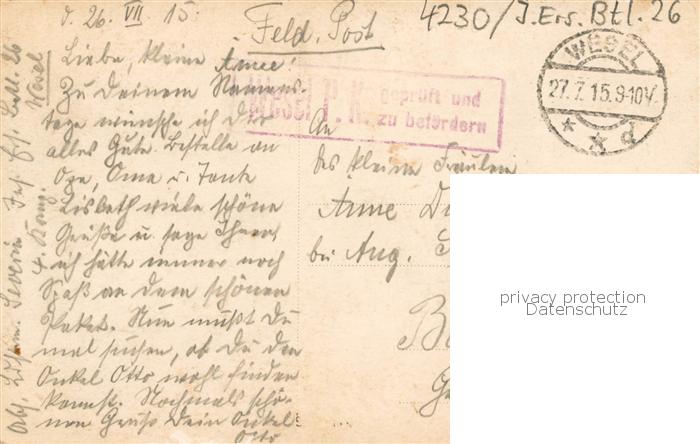 d. 26. VII 15.
Feld. Post
4230/J. Ers. Btl. 26
Liebe, kleine Anne!
Zu Deinem Namens-
tage wünsche ich Dir
alles Gute. Bestelle an
Opa, Oma u. Tante
Lisbeth viele schöne
Grüße u. sage Ihnen,
ich hätte immer noch
Spaß an dem schönen
Paket. Nun mußt Du
mal suchen, ob Du den
Onkel Otto wohl finden
kannst. Nochmals schö-
nen Gruß Dein Onkel
Otto
Abs. Severin Inf. Ers. Batl. 26
4. Komp. Wesel
Wesel P. K. geprüft und
zu befördern
WESEL
27.7.15.9-10V.
* * * d
An
das kleine Fräulein
Anne
bei Aug.
privacy protection
Datenschutz